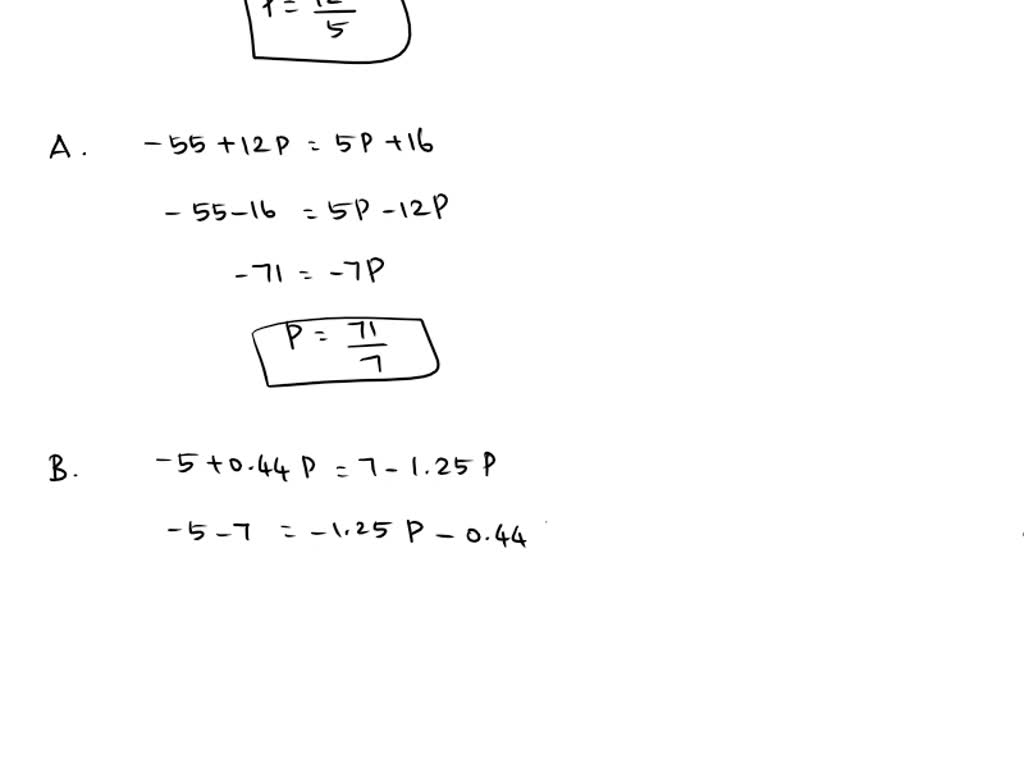 5
A. -55+12P = 5P+16
-55-16 = 5P-12P
-71 = -7P
P = 71/7
B. -5+0.44P = 7-1.25P
-5-7 = -1.25P-0.44